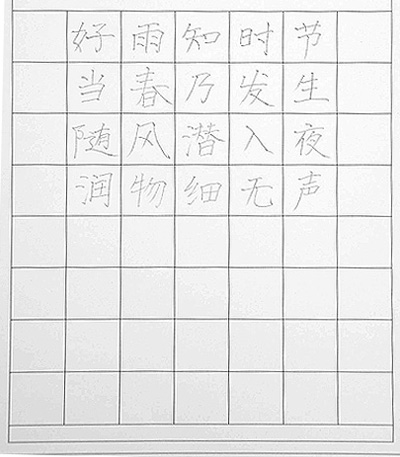 好雨知时节
当春乃发生
随风潜入夜
润物细无声